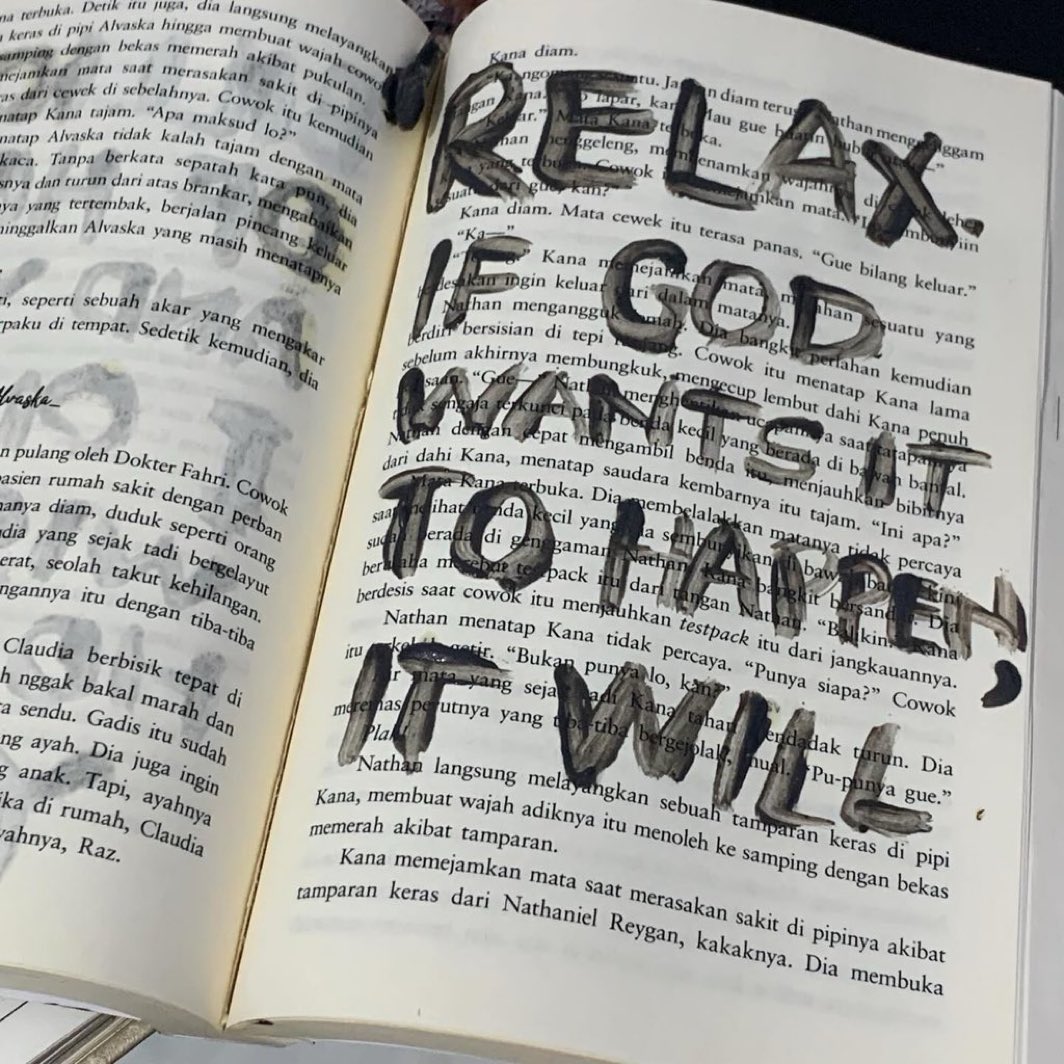 na terbuka. Detik itu juga, dia langsung melayangkan
keras di pipi Alvaska hingga membuat wajah cowo
samping dengan bekas memerah akibat pukulan.
mejamkan mata saat merasakan sakit di pipinya
as dari cewek di sebelahnya. Cowok itu kemudian
natap Kana tajam. “Apa maksud lo?”
natap Alvaska tidak kalah tajam dengan mata
kaca. Tanpa berkata sepatah kata pun, dia
snya dan turun dari atas brankar, mengabaikan
ya yang tertembak, berjalan pincang keluar
inggalkan Alvaska yang masih menatapnya
ti, seperti sebuah akar yang mengakar
rpaku di tempat. Sedetik kemudian, dia
Alvaska_
n pulang oleh Dokter Fahri. Cowok
pasien rumah sakit dengan perban
hanya diam, duduk seperti orang
dia yang sejak tadi bergelayut
erat, seolah takut kehilangan.
ngannya itu dengan tiba-tiba
Claudia berbisik tepat di
h nggak bakal marah dan
a sendu. Gadis itu sudah
ng ayah. Dia juga ingin
g anak. Tapi, ayahnya
ika di rumah, Claudia
yahnya, Raz.
RELAX.
IF GOD
WANTS IT
TO HAPPEN,
IT WILL
Kana diam.
diam terus Nathan menggenggam
lapar, Mau gue
Mata Kana
menggeleng, membenamkan
Cowok mejamkan mata.
dari gue, kan?”
Kana diam. Mata cewek itu terasa panas. “Gue bilang keluar.”
“Ka—”
Kana memejamkan mata, sesuatu yang
berdesakan ingin keluar dari dalam matanya.
Nathan mengangguk Dia bangkit perlahan kemudian
berdiri bersisian di tepi Cowok itu menatap Kana lama
sebelum akhirnya membungkuk, mengecup lembut dahi Kana penuh
“Gue— Nathan menghentikan ucapannya saat tatapannya
tidak sengaja terkunci pada benda kecil yang berada di bawah bantal.
Nathan dengan cepat mengambil benda itu, menjauhkan bibirnya
dari dahi Kana, menatap saudara kembarnya itu tajam. “Ini apa?”
Mata Kana terbuka. Dia membelalakkan matanya tidak percaya
saat melihat benda kecil yang dia sembunyikan di bawah bantal kini
sudah berada di genggaman Nathan. Kana bangkit bersandar. Dia
berusaha merebut testpack itu dari tangan Nathan. “Balikin.” Kana
berdesis saat cowok itu menjauhkan testpack itu dari jangkauannya.
Nathan menatap Kana tidak percaya. “Punya siapa?” Cowok
itu terkekeh getir. “Bukan punya lo, kan?”
Air mata yang sejak tadi Kana tahan mendadak turun. Dia
meremas perutnya yang tiba-tiba bergejolak, mual. “Pu-punya gue.”
Plak!
Nathan langsung melayangkan sebuah tamparan keras di pipi
Kana, membuat wajah adiknya itu menoleh ke samping dengan bekas
memerah akibat tamparan.
Kana memejamkan mata saat merasakan sakit di pipinya akibat
tamparan keras dari Nathaniel Reygan, kakaknya. Dia membuka